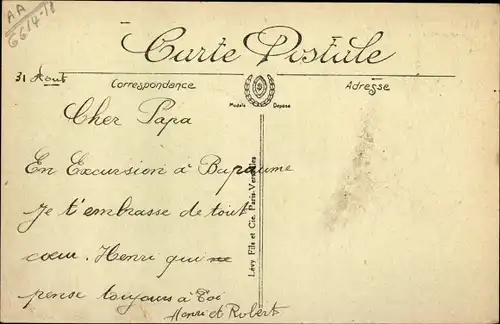 AA
6614-18
Carte Postale
31 Aout
Correspondance
Adresse
Modèle Déposé
Cher Papa
En Excursion à Bapaume
Je t'embrasse de tout
cœur. Henri qui
pense toujours à toi
Henri et Robert
Lévy Fils et Cie, Paris-Versailles